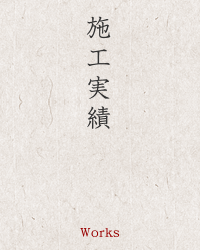 施工実績
Works